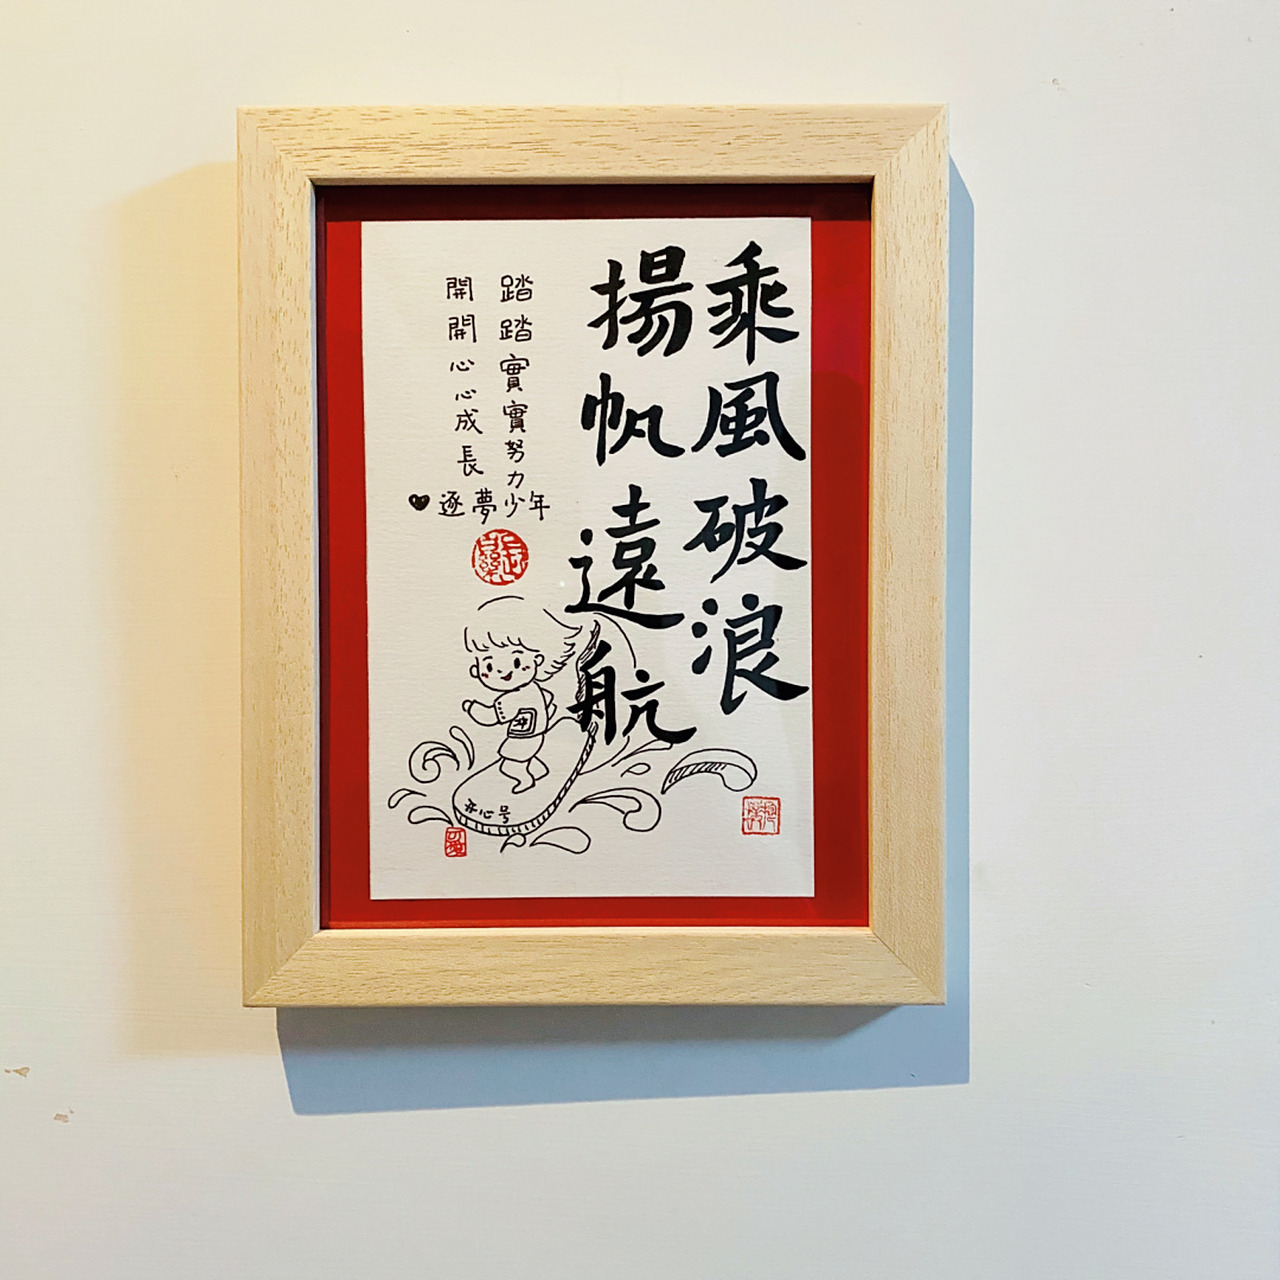 乘風破浪
揚帆遠航
踏踏實實努力
開開心心成長
♥逐夢少年
开心号